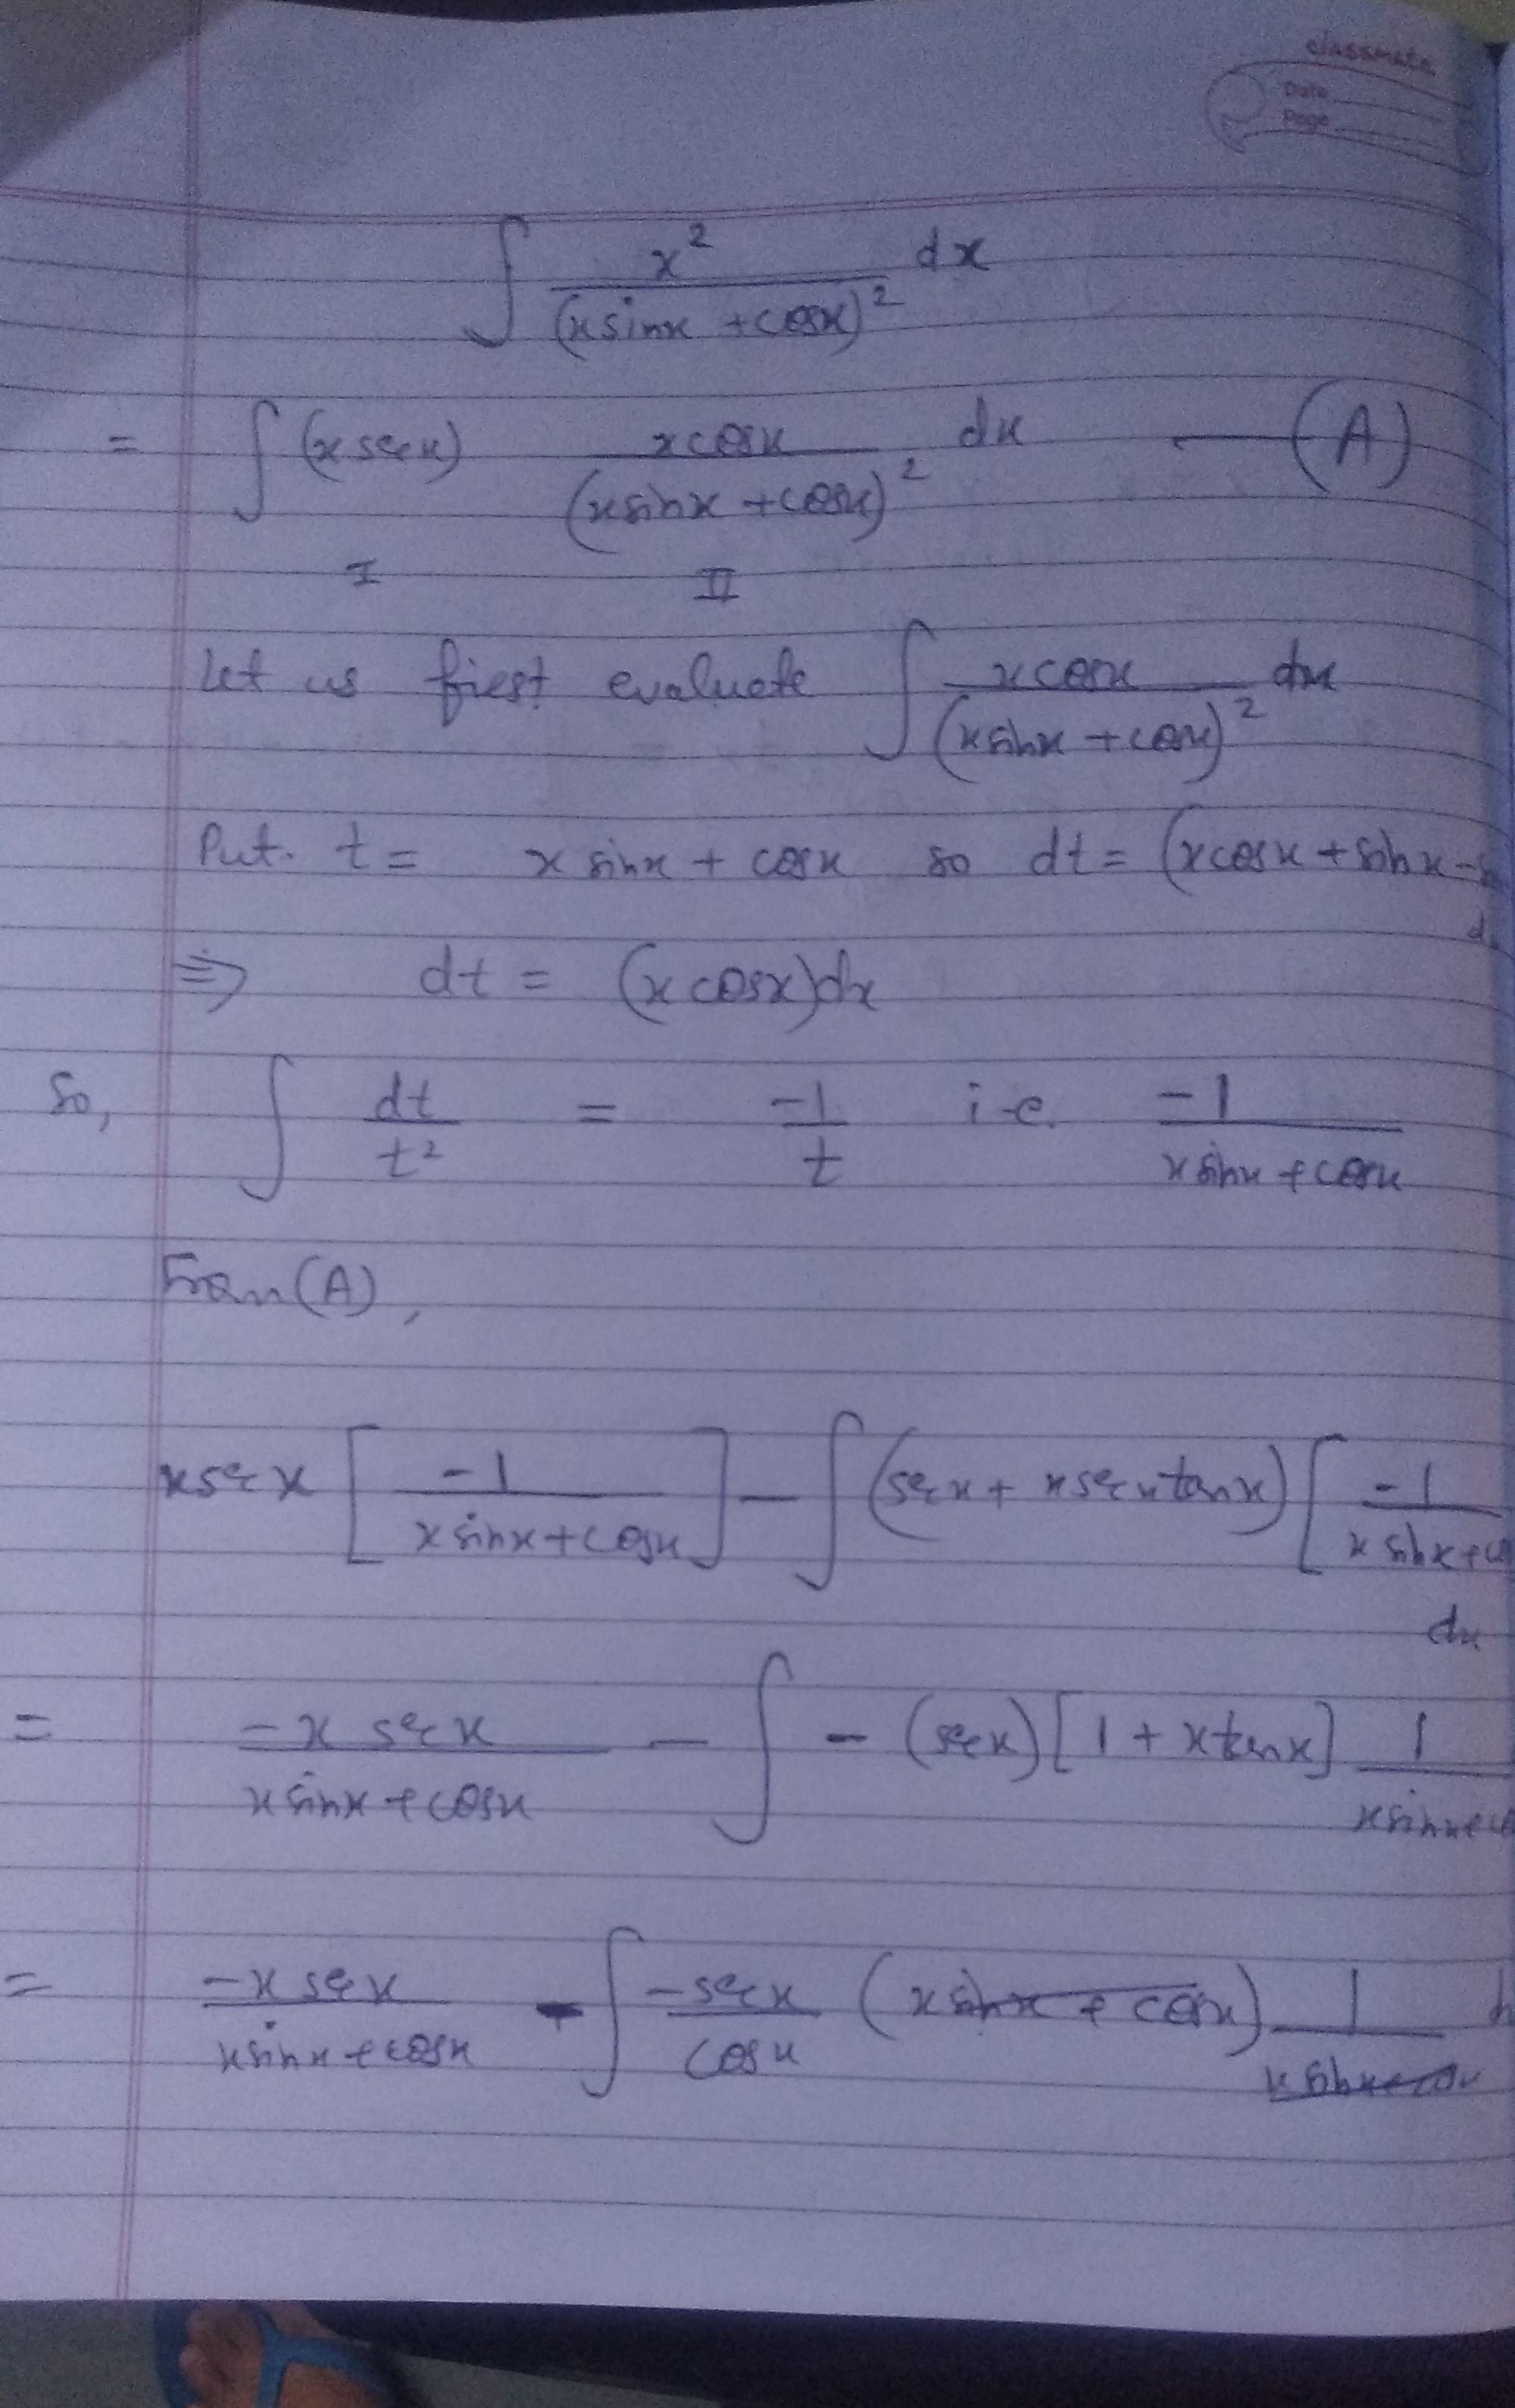 classmate
Date
Page
∫ x² / (x sinx + cosx)² dx
= ∫ (x secx) x cosx / (x sinx + cosx)² dx — (A)
I II
Let us first evaluate ∫ x cosx / (x sinx + cosx)² dx
Put. t = x sinx + cosx so dt = (x cosx + sinx -
⇒ dt = (x cosx)dx
So, ∫ dt / t² = -1 / t i.e. -1 / x sinx + cosx
From (A),
x secx [ -1 / x sinx + cosx ] - ∫ (secx + x secx tanx) [ -1 / x sinx +
dx
= -x secx / x sinx + cosx - ∫ - (secx) [1 + x tanx] 1 / x sinx +
= -x secx / x sinx + cosx - ∫ -secx / cosx (x sinx + cosx) 1 / x sinx + cosx